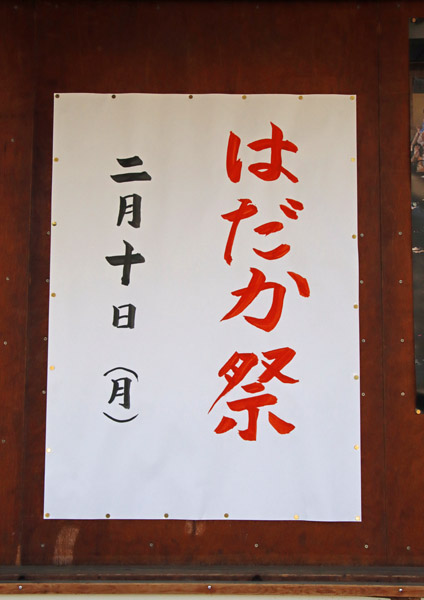 はだか祭
二月十日(月)